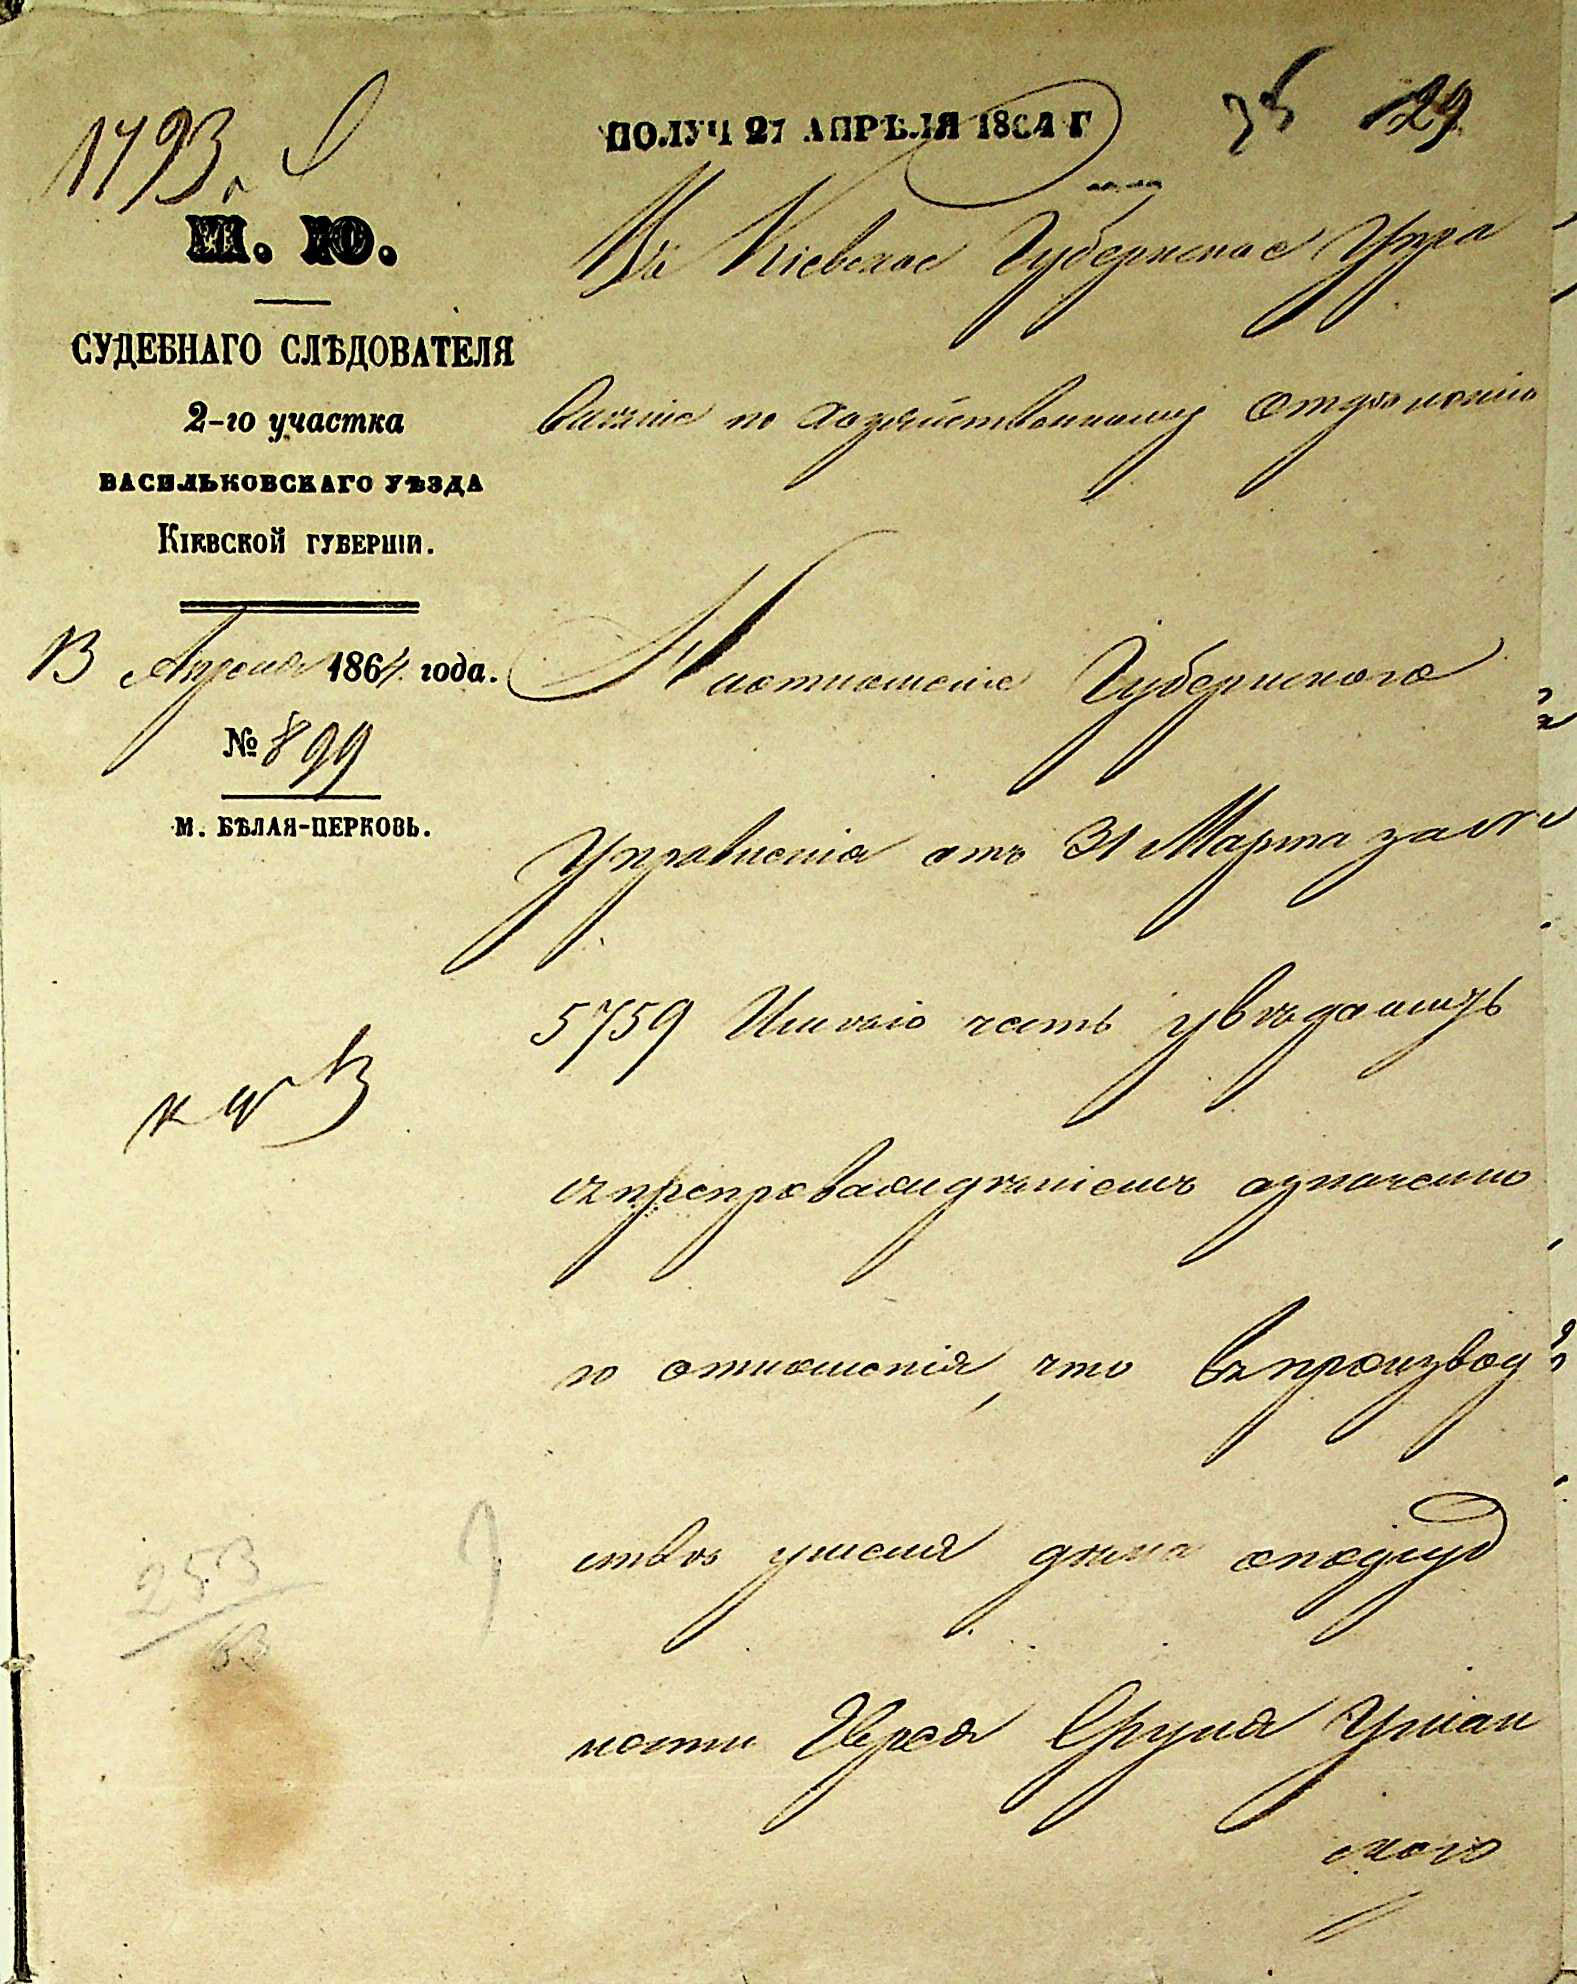 1793.
ПОЛУЧ 27 АПРѢЛЯ 1864 Г
35 29
М. Ю.
СУДЕБНАГО СЛѢДОВАТЕЛЯ
2-го участка
ВАСИЛЬКОВСКАГО УѢЗДА
КІЕВСКОЙ ГУБЕРНІИ.
13 Апреля 1864 года.
№ 899
М. БѢЛАЯ-ЦЕРКОВЬ.
Въ Кіевское Губернское Упра
вленіе по Хозяйственному Отдѣленію
На отношеніе Губернскаго
Управленія отъ 31 Марта за №
5759 Имѣю честь увѣдомить
съ препровожденіемъ означенно
го отношенія, что въ производ
ствѣ у меня дѣла о подсуд
ности Еврея Сруля Уман
скаго
253
63